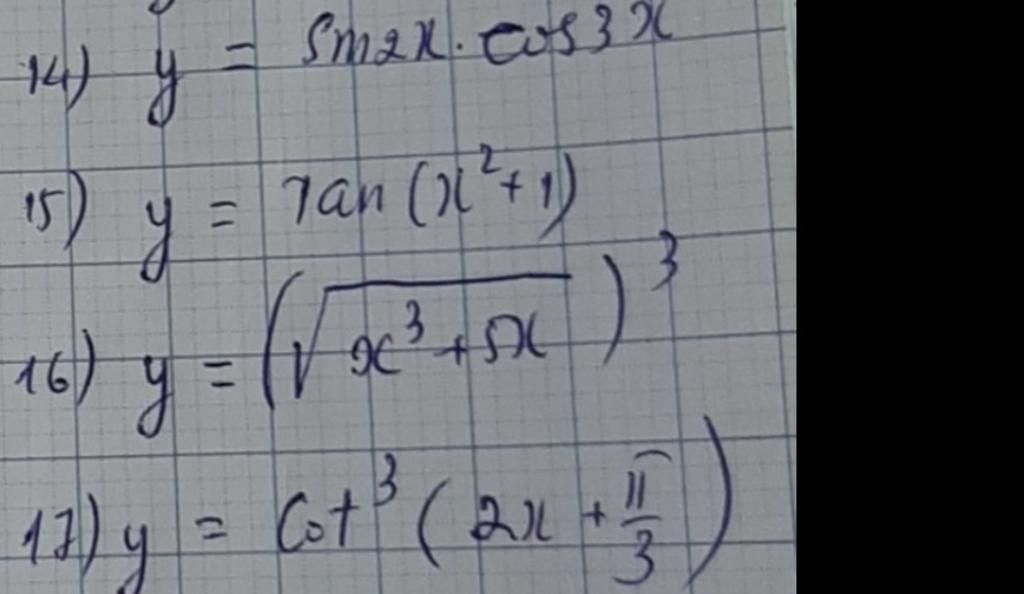 14) y = sin2x . cos3x
15) y = tan(x² + 1)
16) y = (√(x³ + 5x))³
17) y = cot³(2x + π/3)